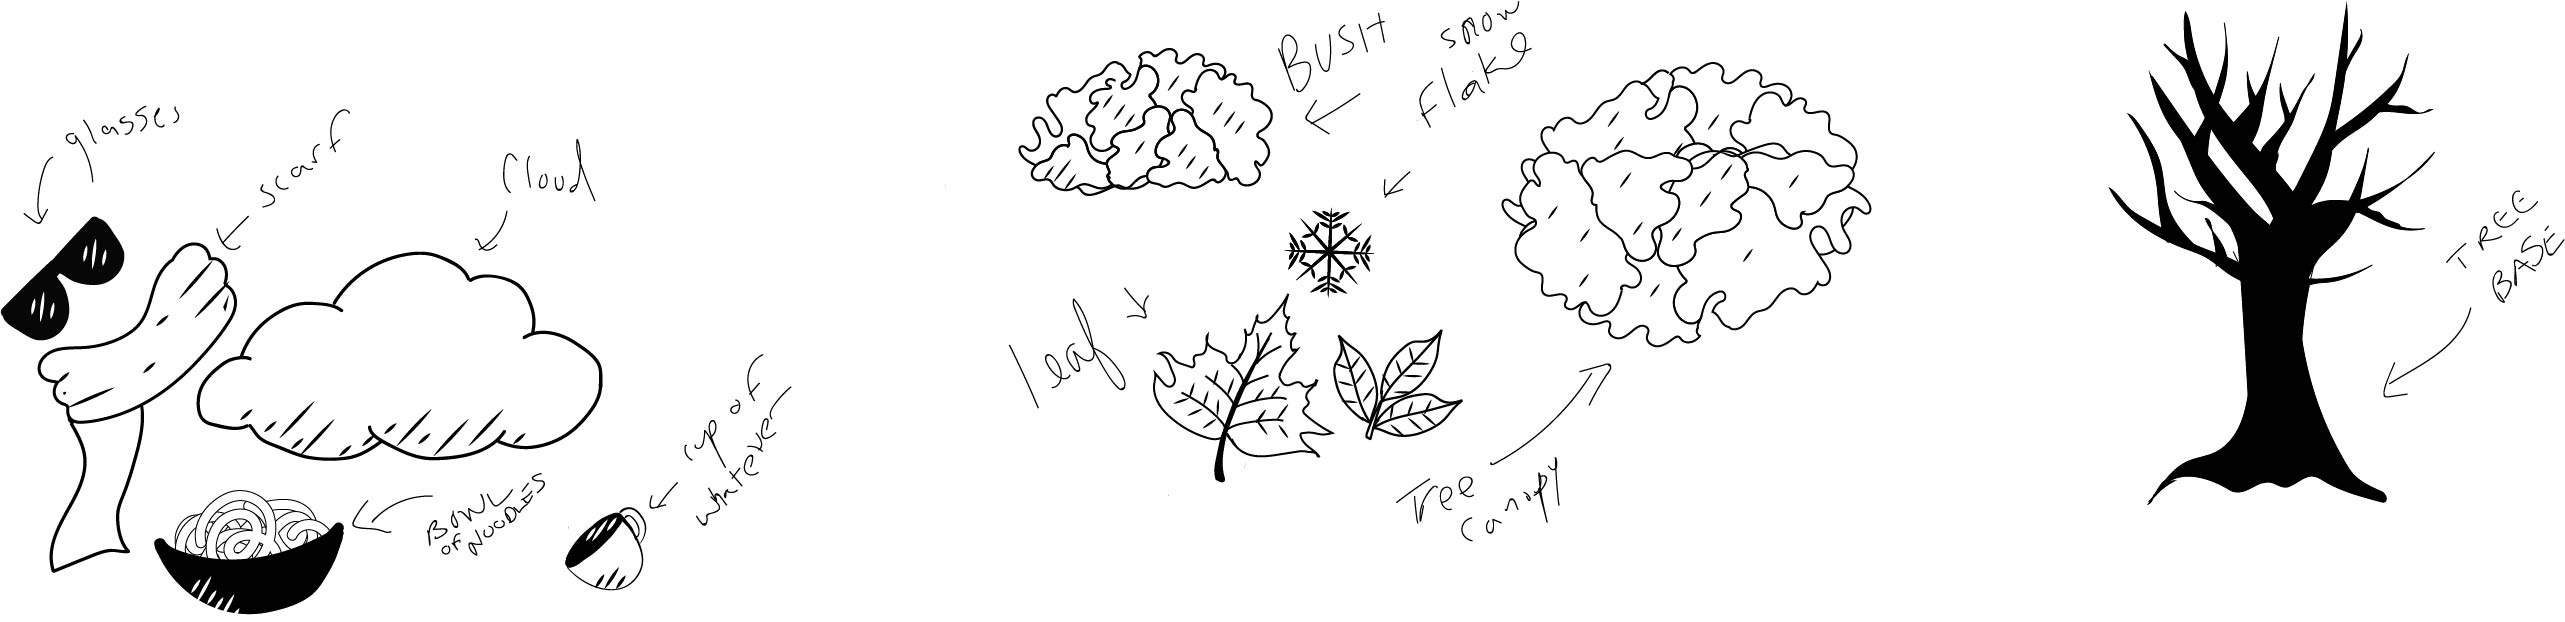 glasses
scarf
Cloud
BOWL
OF NOODLES
cup of
whatever
BUSH
snow
flake
leaf
Tree
canopy
TREE
BASE